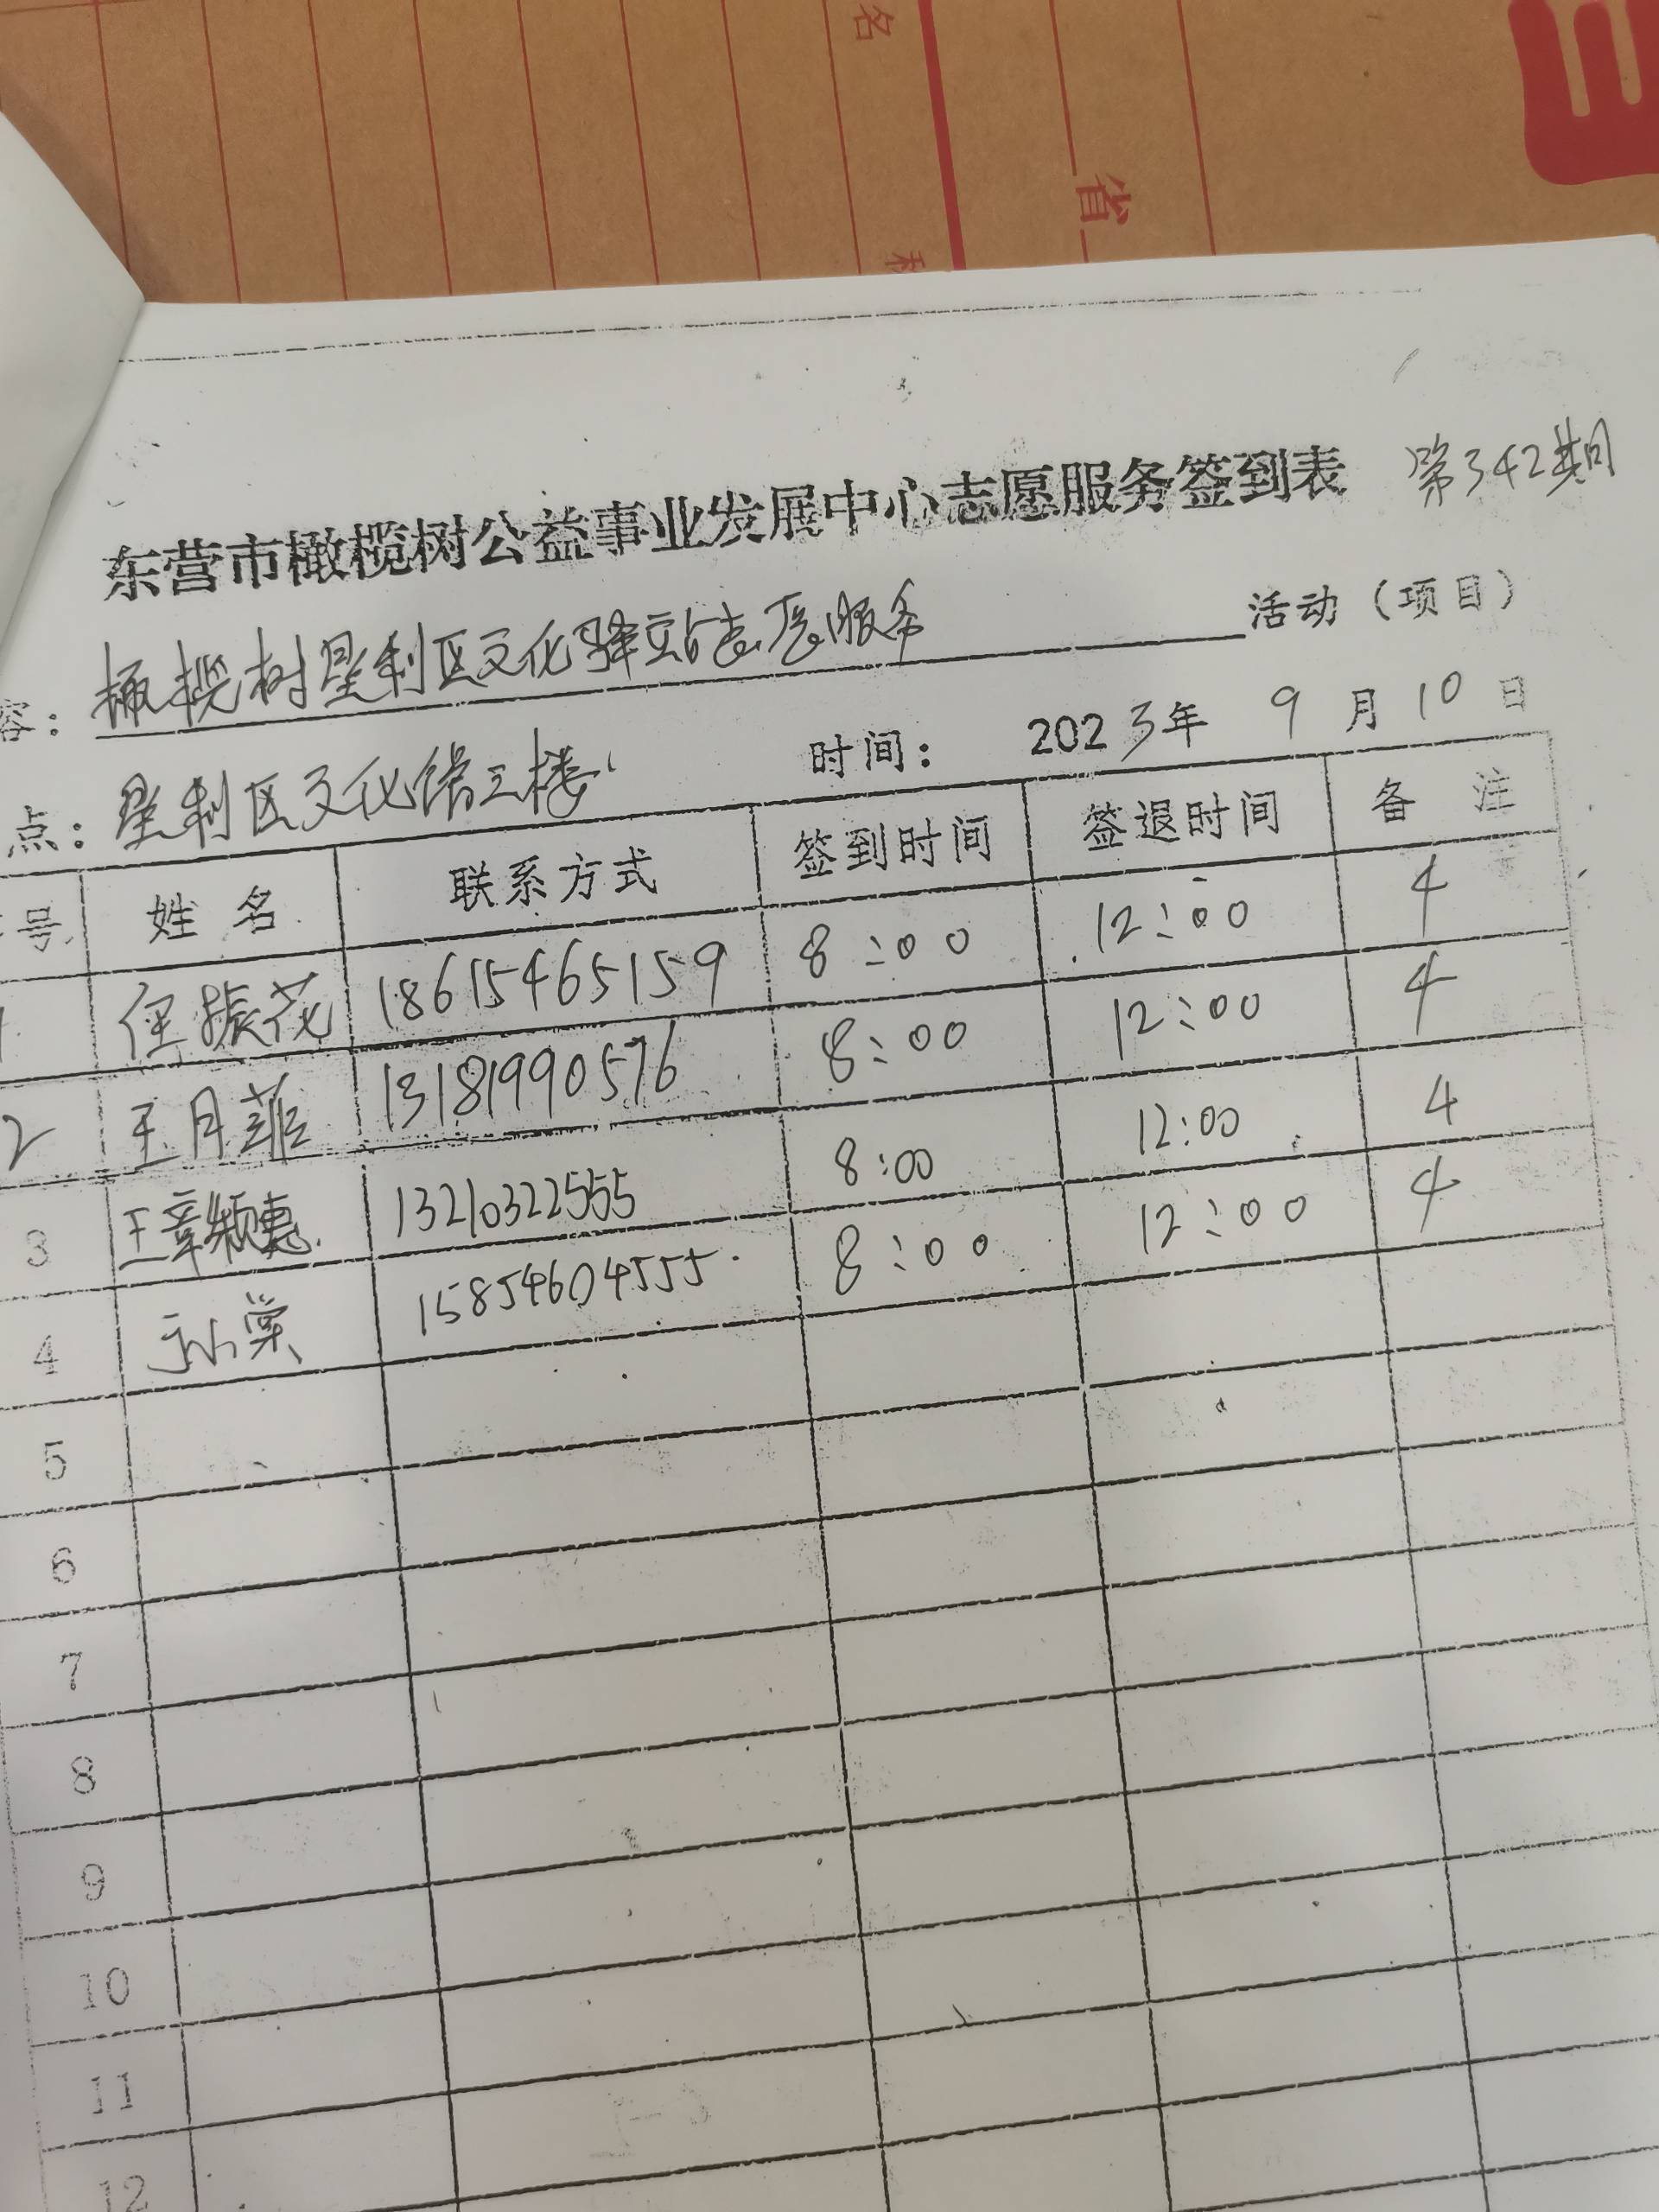 名
省
东营市橄榄树公益事业发展中心志愿服务签到表 第342期
容：橄榄树垦利区文化驿站志愿服务 活动（项目）
点：垦利区文化馆三楼 时间：2023年 9 月 10 日
号 姓 名 联系方式 签到时间 签退时间 备 注
1 任振花 18615465159 8:00 12:00 4
2 王月菲 13181990576 8:00 12:00 4
3 王章颖惠 13210322555 8:00 12:00 4
4 15854604555 8:00 12:00 4
5
6
7
8
9
10
11
12